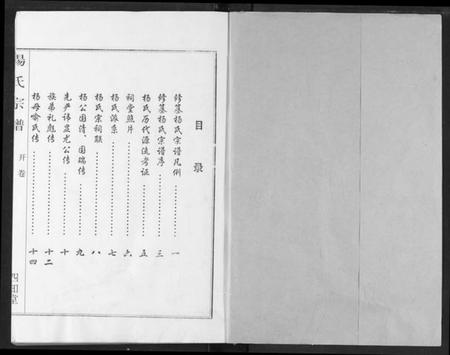 目录
修纂杨氏宗谱凡例…………一
修纂杨氏宗谱序…………三
杨氏历代源流考证…………五
祠堂照片…………六
杨氏派系…………七
杨氏宗祠联…………八
杨公国清、国瑞传…………九
先严讳显尤公传…………十
族弟礼彪传…………十二
杨母喻氏传…………十四
楊氏宗譜
开卷
四知堂